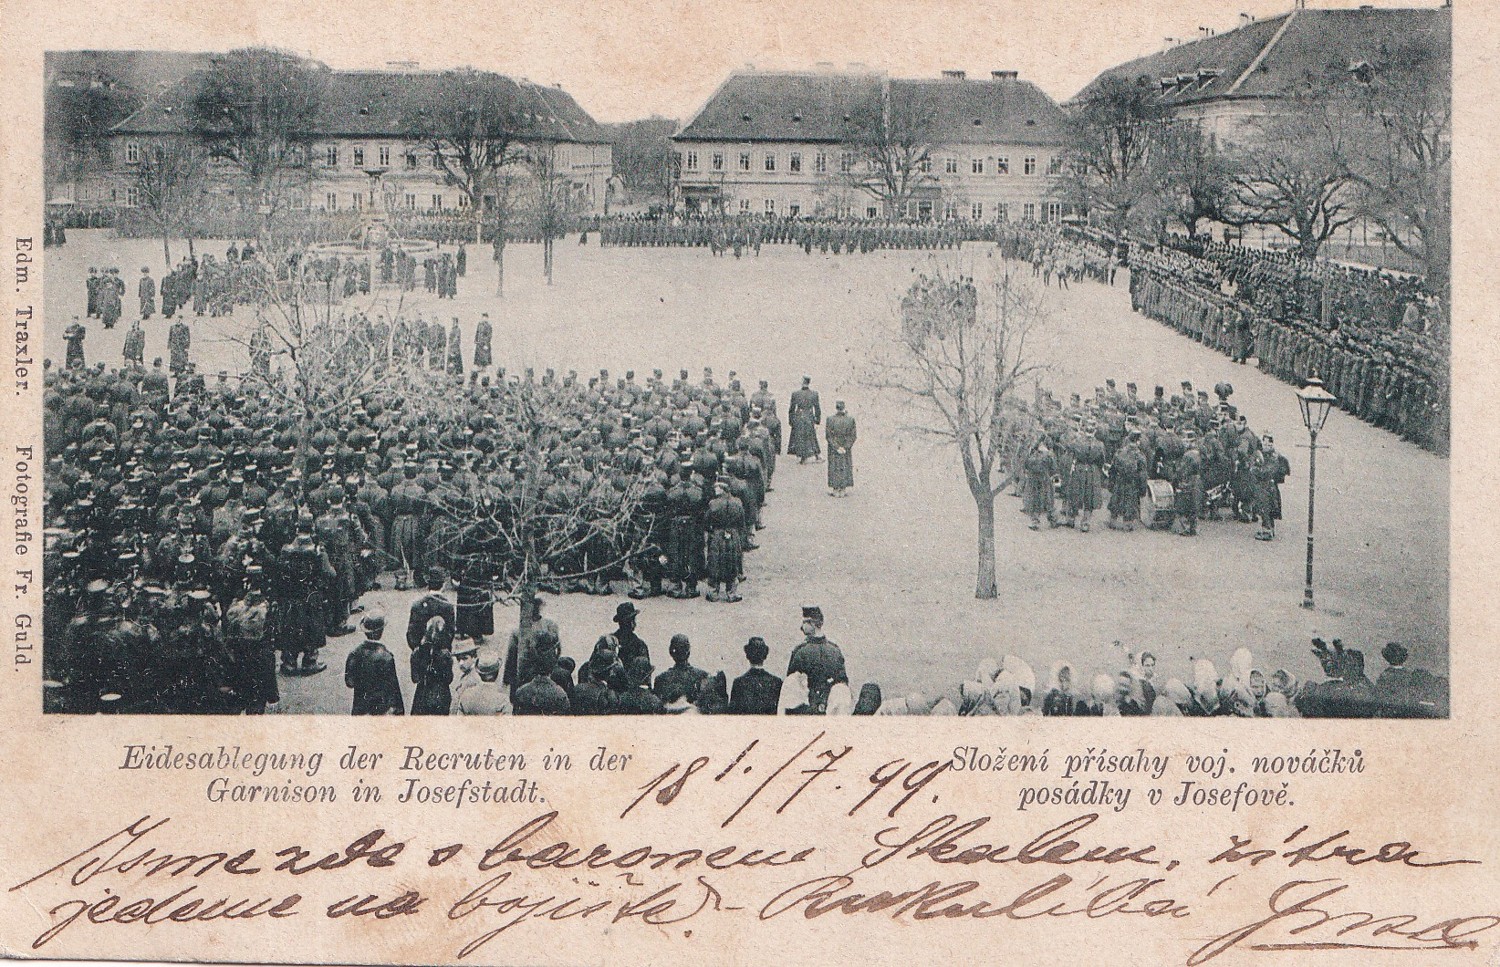 Edm. Traxler. Fotografie Fr. Guld.
Eidesablegung der Recruten in der
Garnison in Josefstadt.
Složení přísahy voj. nováčků
posádky v Josefově.
18 1./7. 99.
Jsme zde s baronem Skalem, zítra
jedeme na bojiště. - Ruku líbá